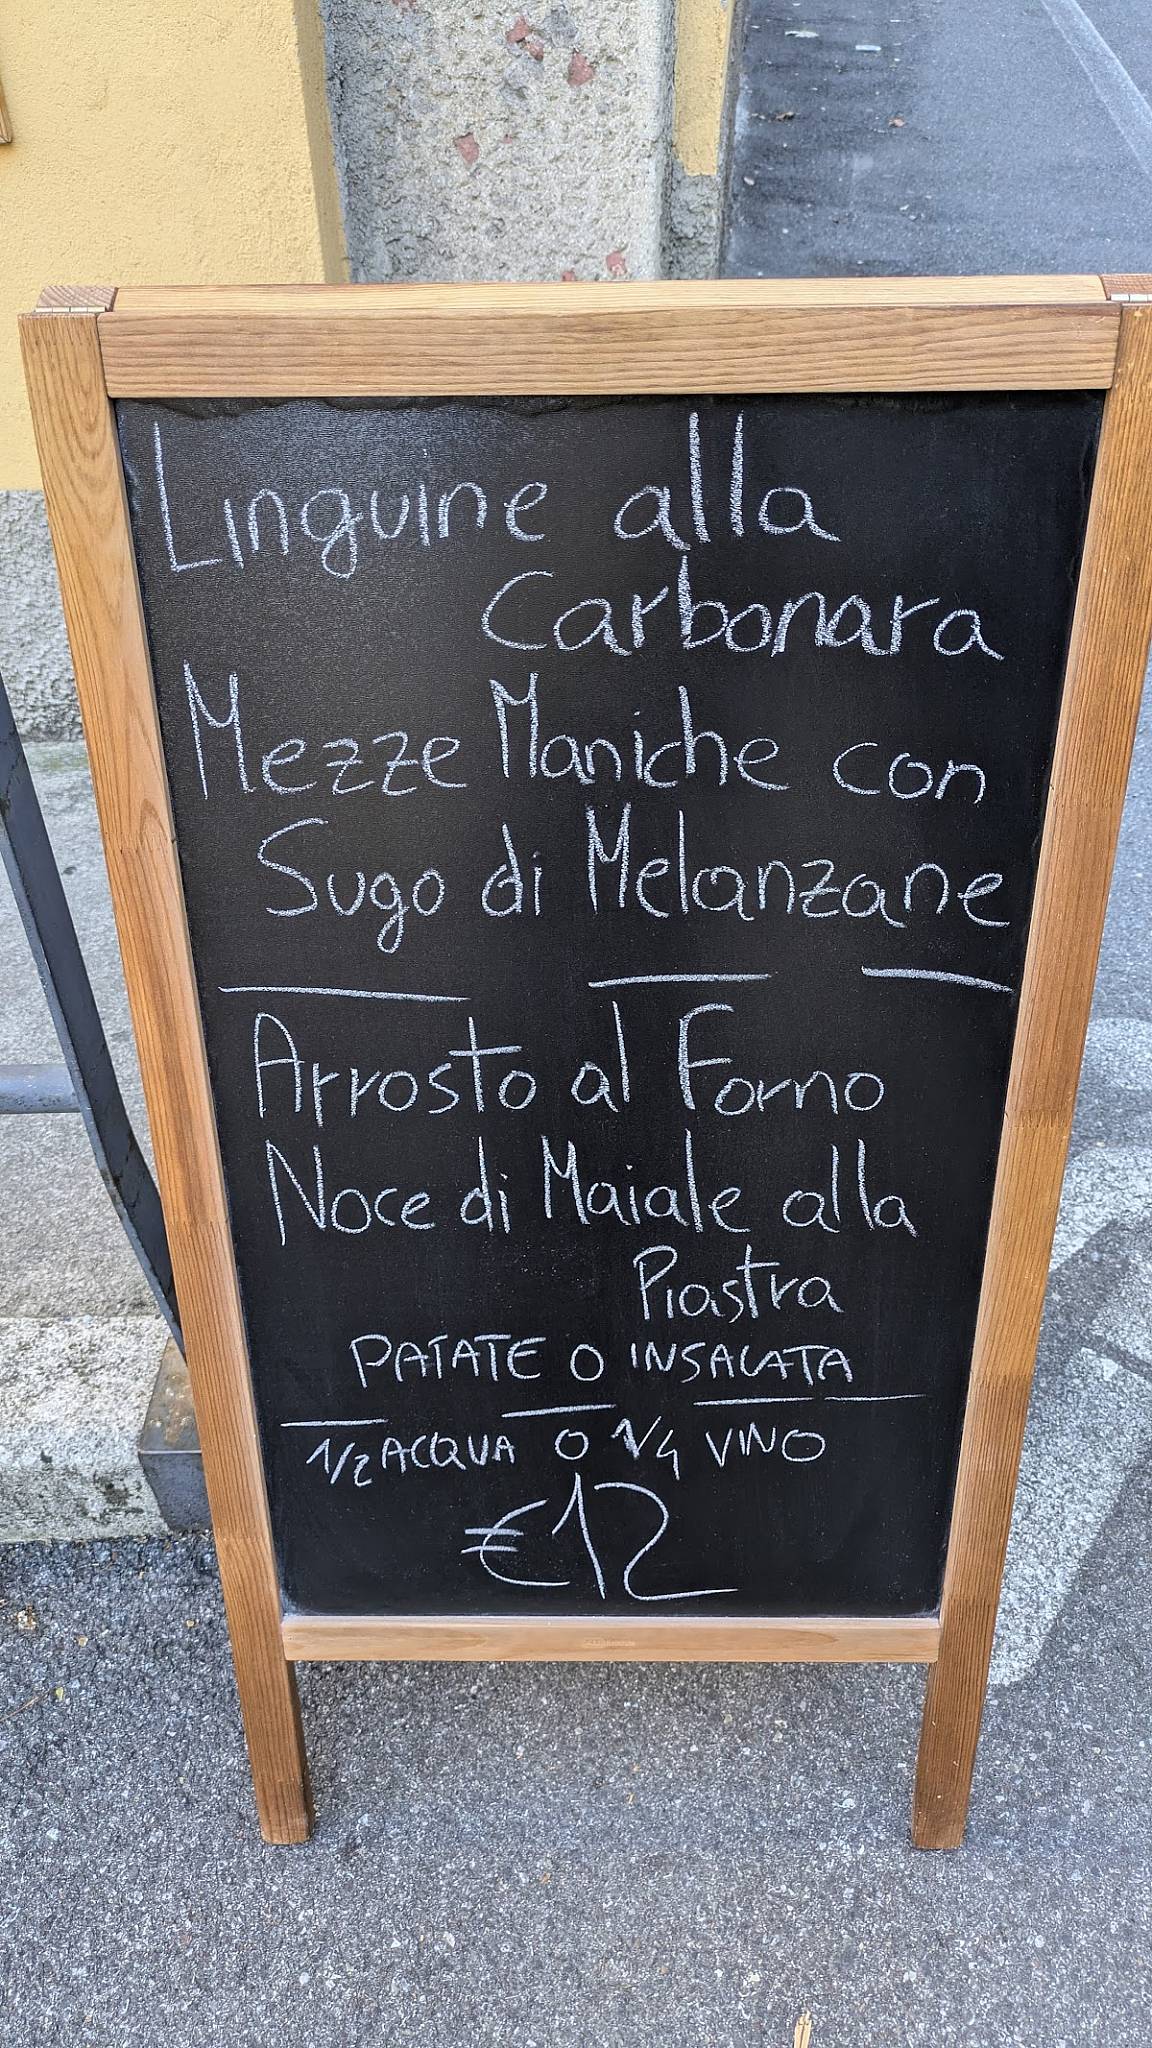 Linguine alla
Carbonara
Mezze Maniche con
Sugo di Melanzane
Arrosto al Forno
Noce di Maiale alla
Piastra
PATATE O INSALATA
1/2 ACQUA O 1/4 VINO
€12